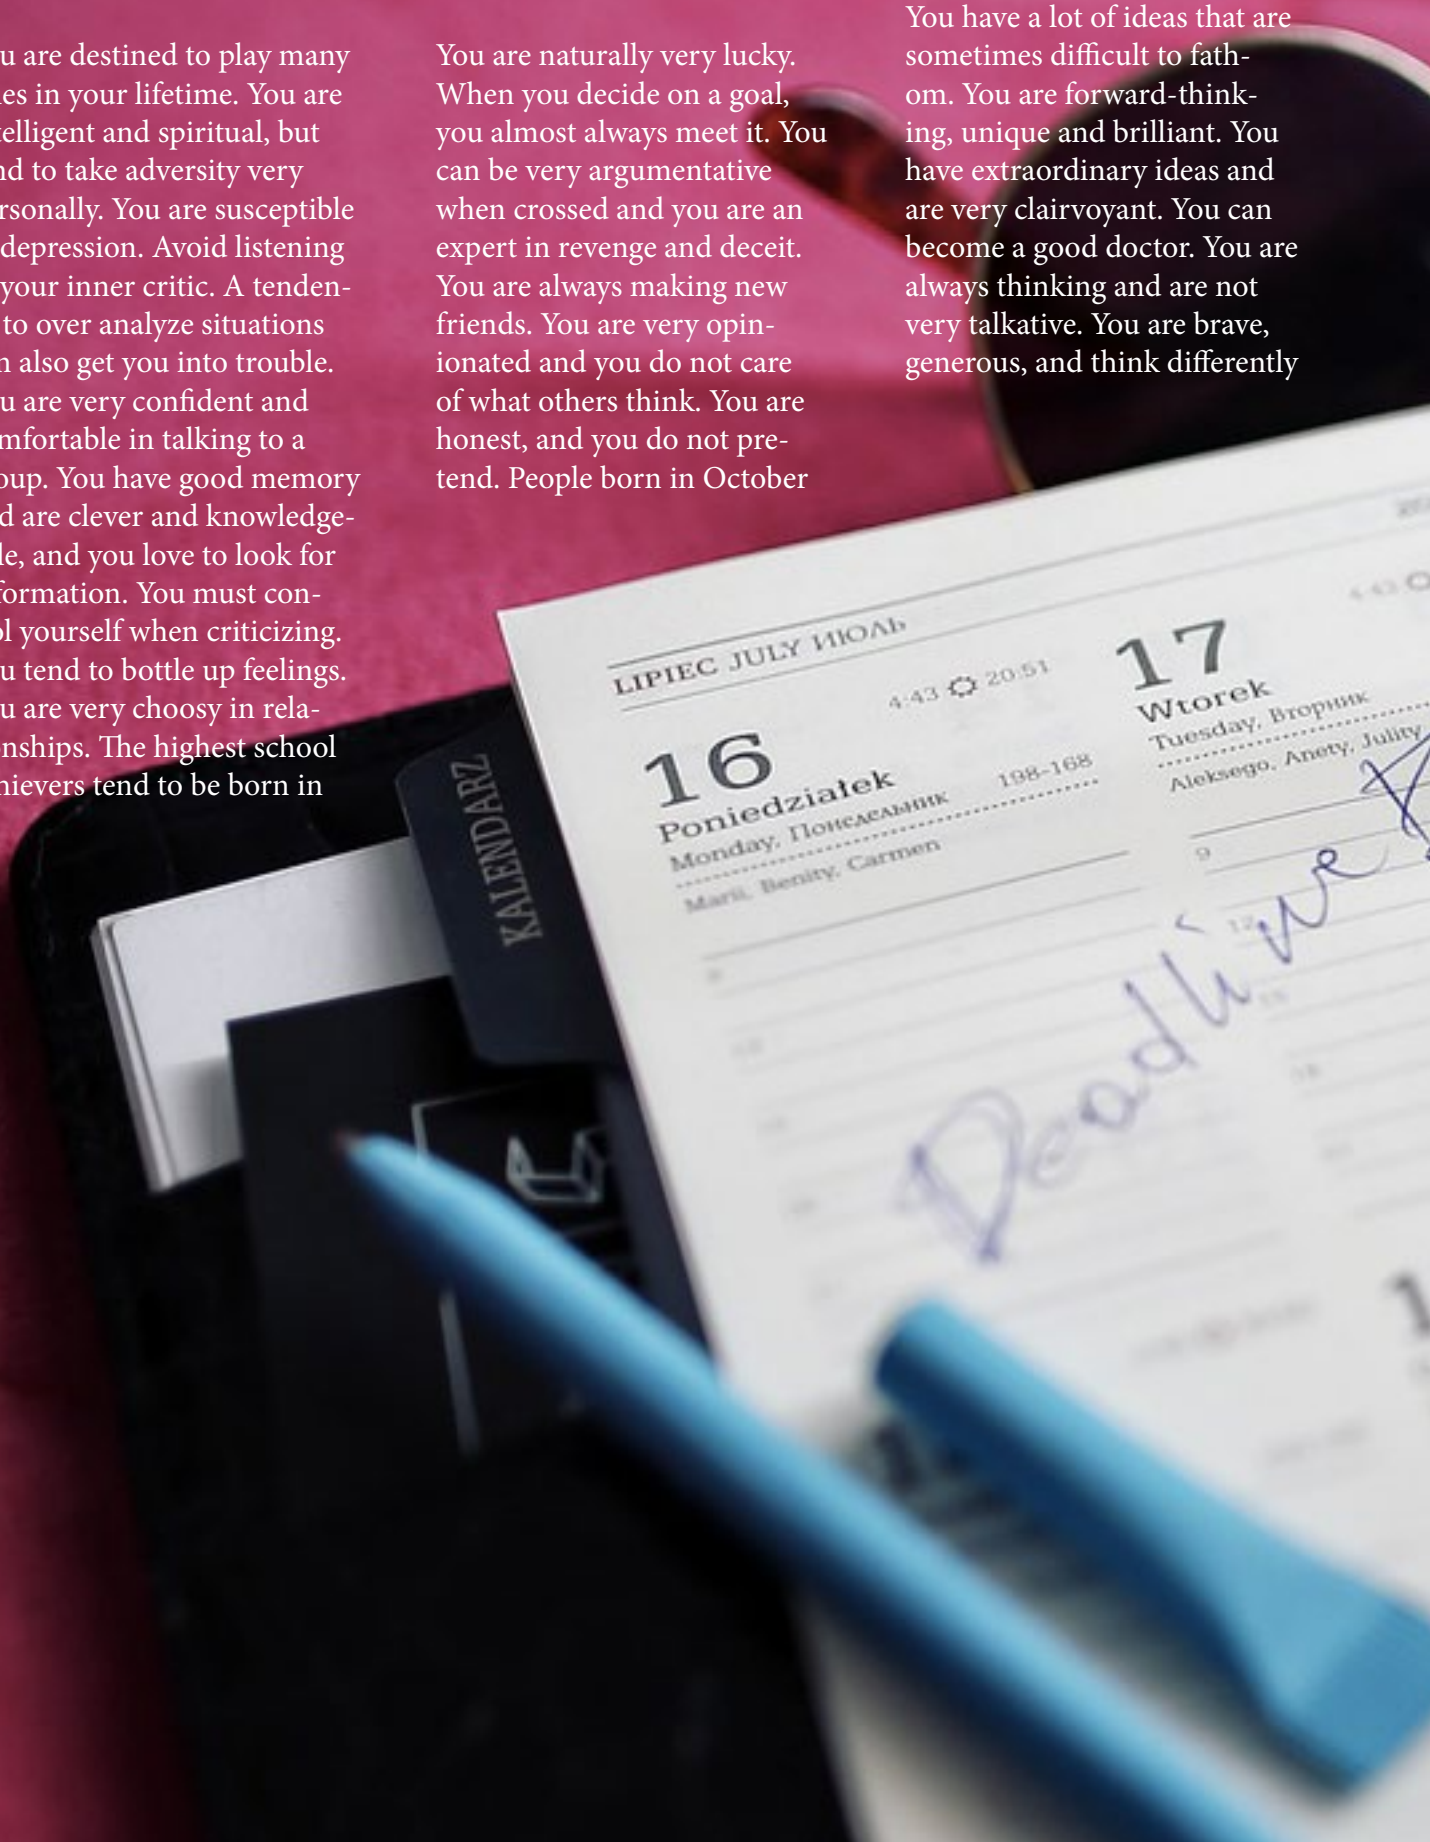 u are destined to play many
es in your lifetime. You are
telligent and spiritual, but
nd to take adversity very
rsonally. You are susceptible
depression. Avoid listening
your inner critic. A tenden-
to over analyze situations
n also get you into trouble.
u are very confident and
mfortable in talking to a
oup. You have good memory
d are clever and knowledge-
le, and you love to look for
formation. You must con-
ol yourself when criticizing.
u tend to bottle up feelings.
u are very choosy in rela-
onships. The highest school
hievers tend to be born in
You are naturally very lucky.
When you decide on a goal,
you almost always meet it. You
can be very argumentative
when crossed and you are an
expert in revenge and deceit.
You are always making new
friends. You are very opin-
ionated and you do not care
of what others think. You are
honest, and you do not pre-
tend. People born in October
You have a lot of ideas that are
sometimes difficult to fath-
om. You are forward-think-
ing, unique and brilliant. You
have extraordinary ideas and
are very clairvoyant. You can
become a good doctor. You are
always thinking and are not
very talkative. You are brave,
generous, and think differently
LIPIEC JULY ИЮЛЬ
4:43 20:51
16
Poniedziałek
Monday, Понедельник 198-168
Marii, Benity, Carmen
17
Wtorek
Tuesday, Вторник
Aleksego, Anety, Julity
9
12
KALENDARZ
Deadline